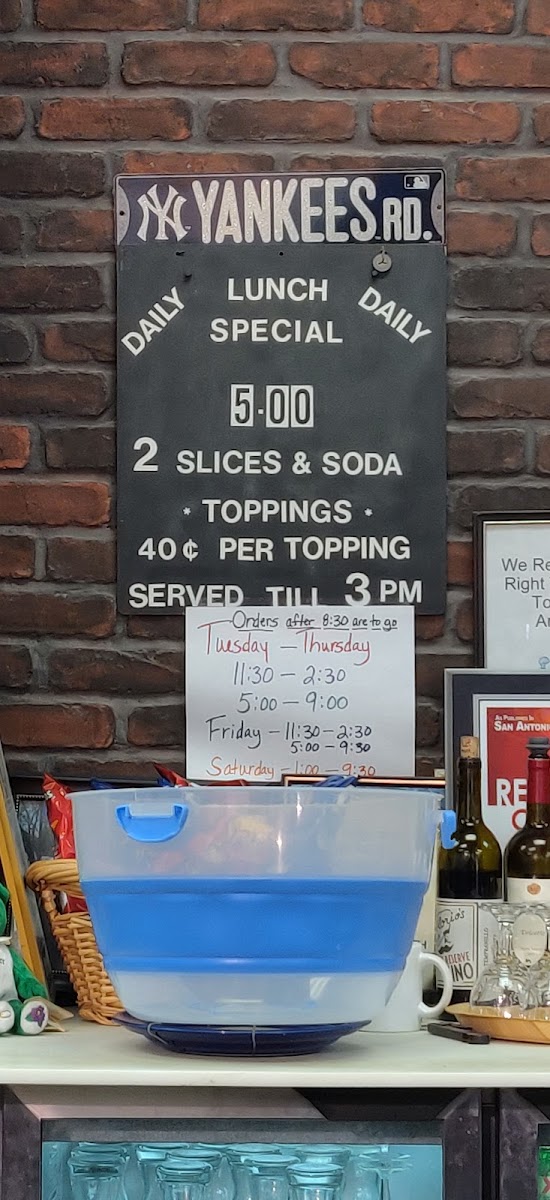 NY YANKEES RD.
DAILY LUNCH DAILY
SPECIAL
5.00
2 SLICES & SODA
* TOPPINGS *
40¢ PER TOPPING
SERVED TILL 3 PM
Orders after 8:30 are to go
Tuesday — Thursday
11:30 — 2:30
5:00 — 9:00
Friday — 11:30 — 2:30
5:00 — 9:30
Saturday — 1:00 — 9:30
We Re
Right
To
An
AS PUBLISHED IN
SAN ANTONI
RE